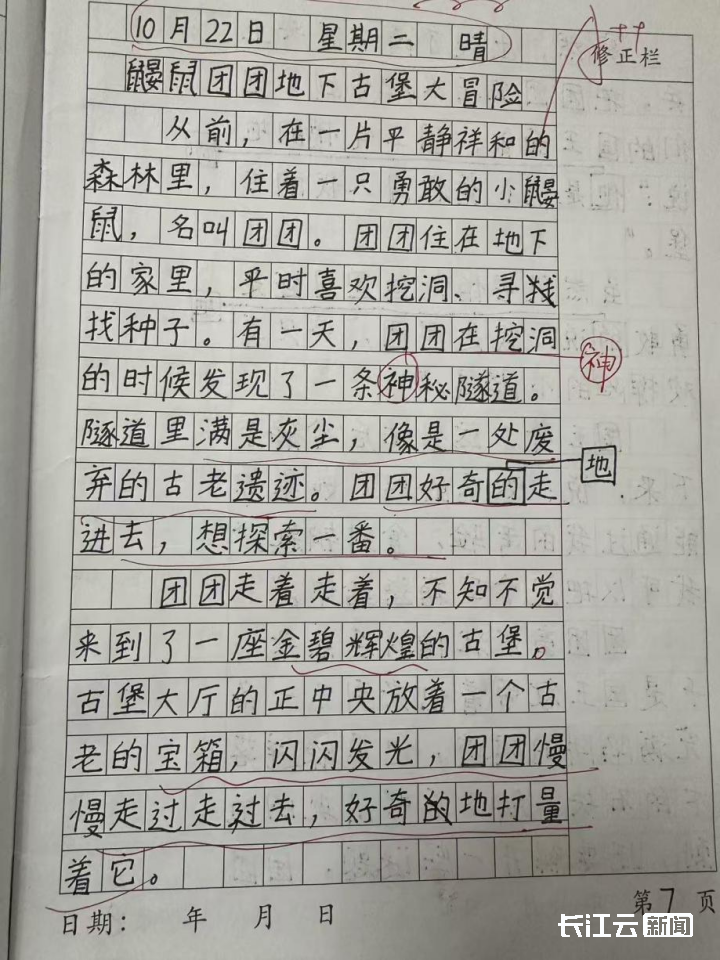 10月22日 星期二 晴
修正栏
鼹鼠团团地下古堡大冒险
从前，在一片平静祥和的
森林里，住着一只勇敢的小鼹
鼠，名叫团团。团团住在地下
的家里，平时喜欢挖洞、寻找
找种子。有一天，团团在挖洞
神
的时候发现了一条神秘隧道。
隧道里满是灰尘，像是一处废
地
弃的古老遗迹。团团好奇的走
进去，想探索一番。
团团走着走着，不知不觉
来到了一座金碧辉煌的古堡。
古堡大厅的正中央放着一个古
老的宝箱，闪闪发光，团团慢
慢走过走过去，好奇的地打量
着它。
日期： 年 月 日
第7页
长江云新闻